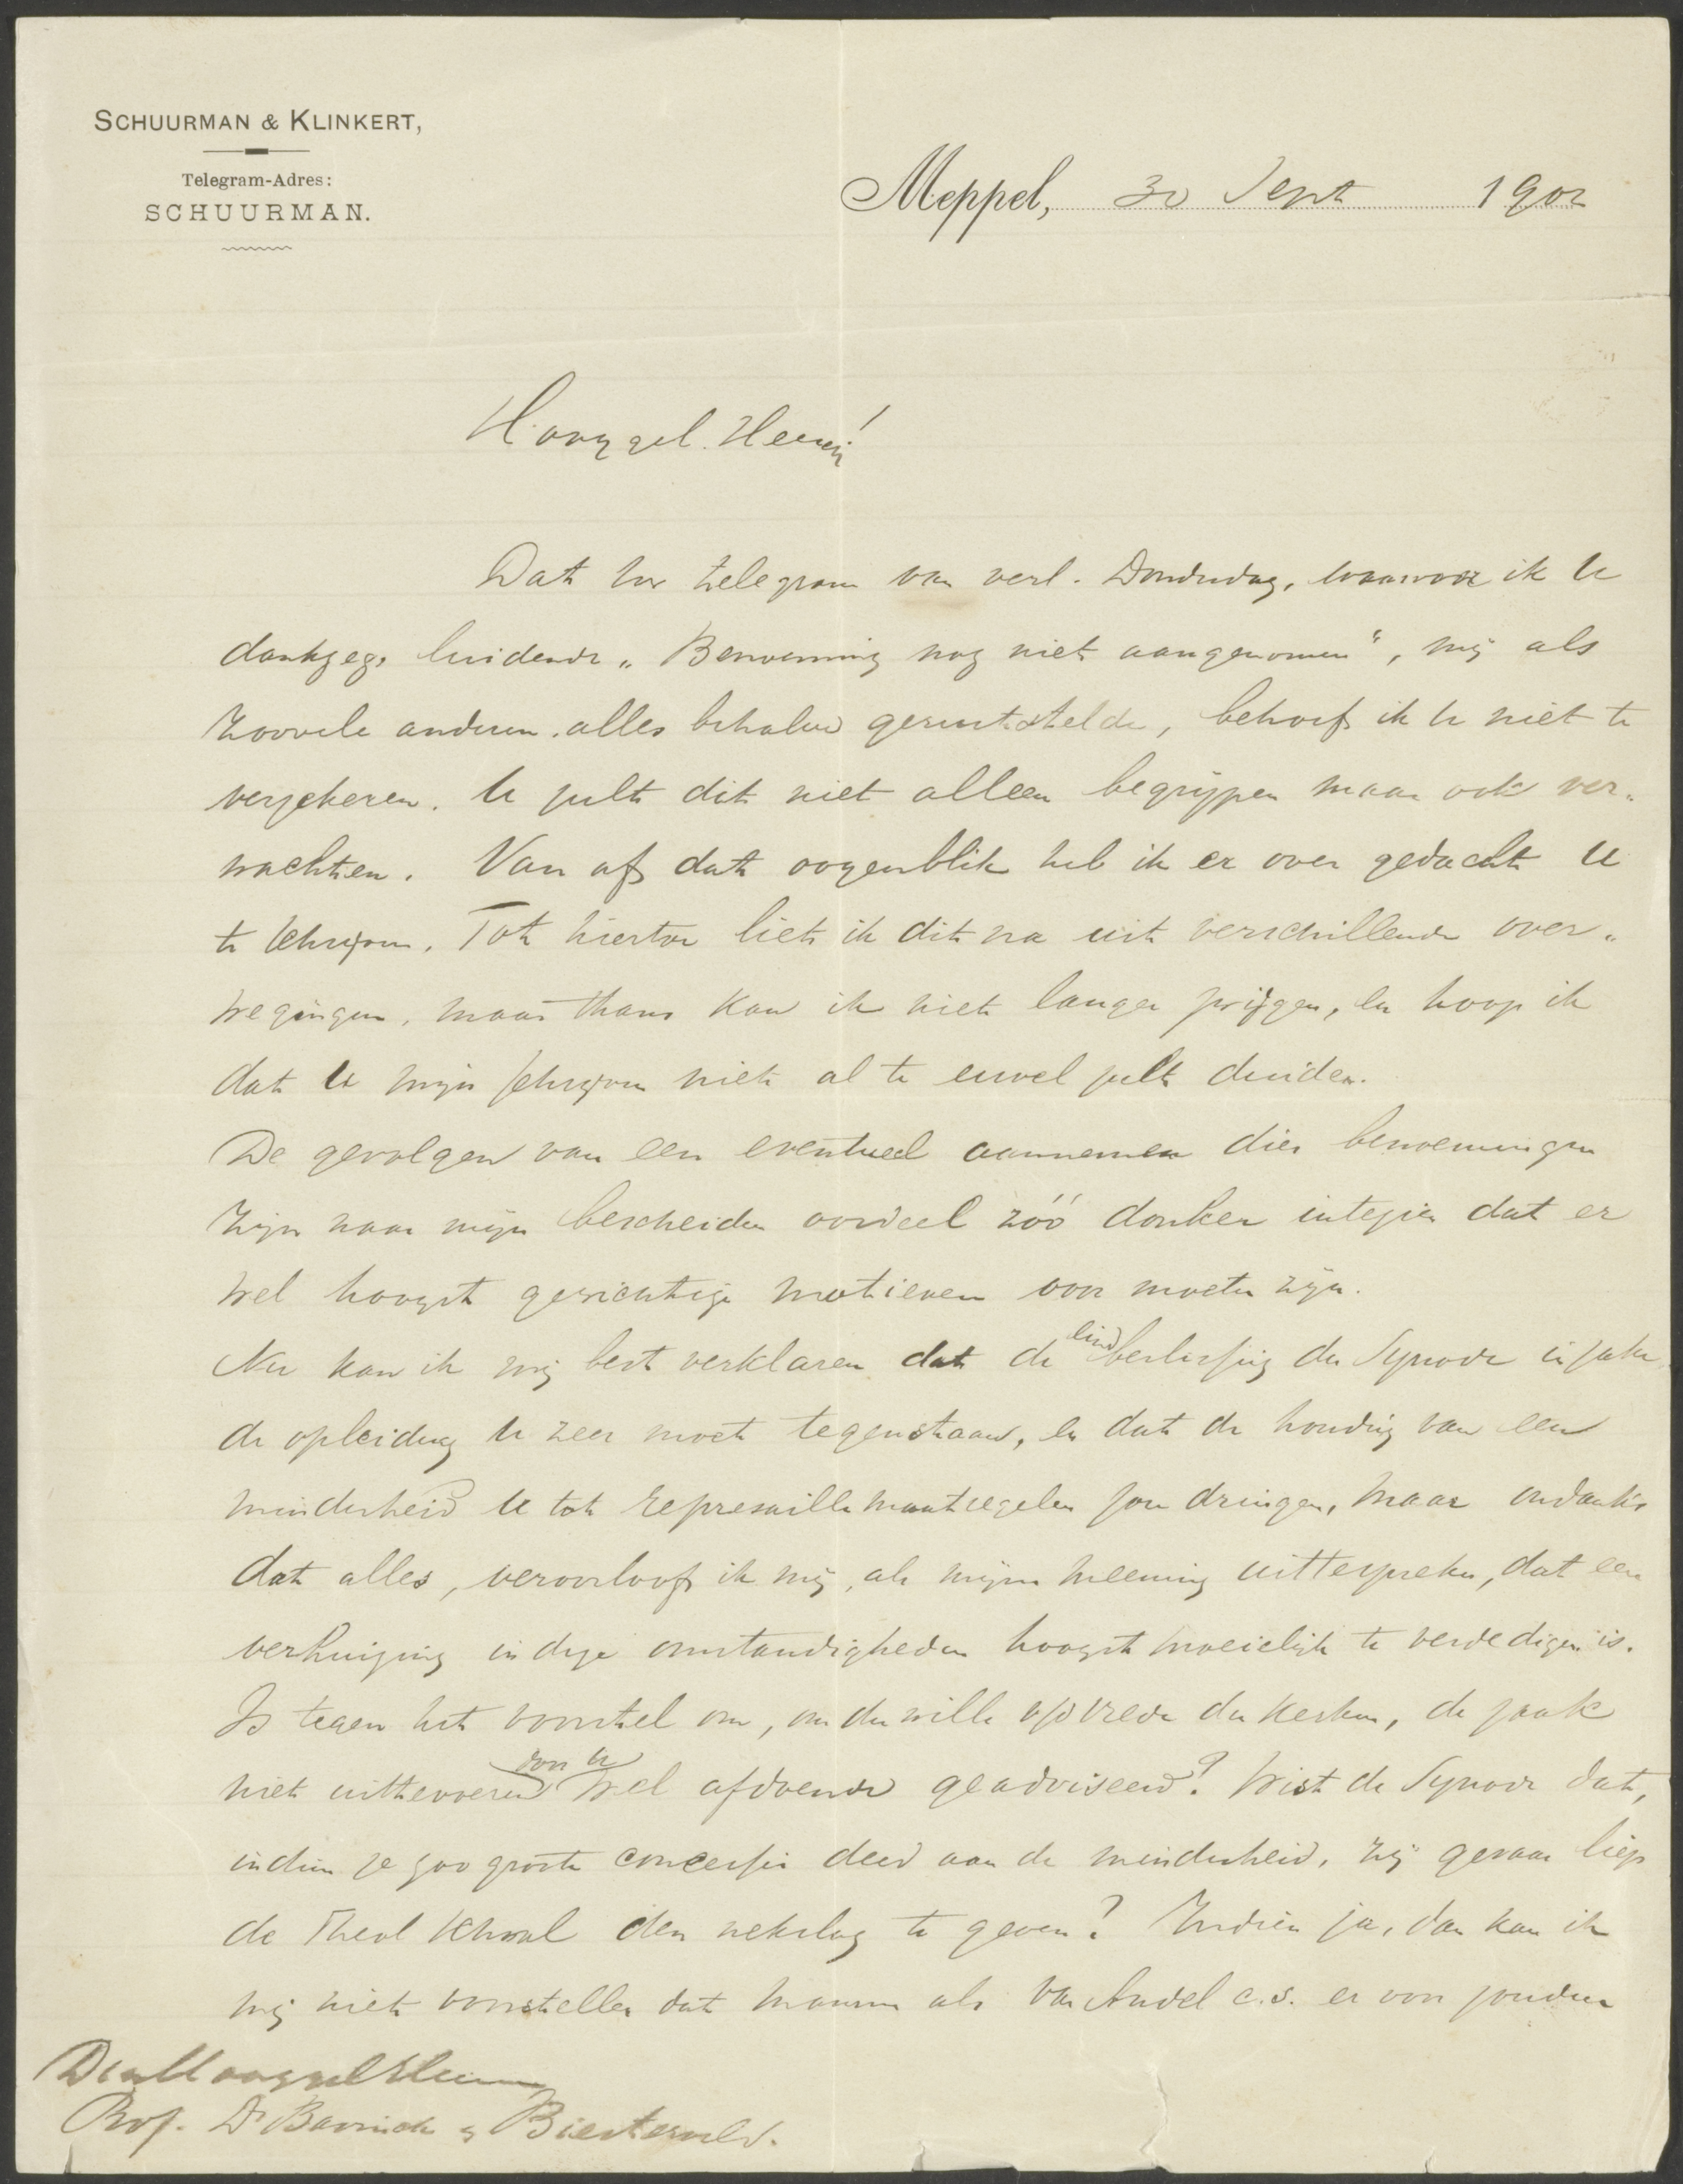 SCHUURMAN & KLINKERT,
Telegram-Adres:
SCHUURMAN.
Meppel, 30 Sept 1902
Hooggel. Heeren!
Dat Uw telegram van verl. Donderdag, waarvoor ik U
dankzeg, luidende „Benoeming nog niet aangenomen“, mij als
zoovele anderen alles behalve geruststelde, behoef ik U niet te
verzekeren. U zult dit niet alleen begrijpen maar ook ver„
wachten. Van af dat oogenblik heb ik er over gedacht U
te schrijven. Tot hiertoe liet ik dit na uit verschillende over„
wegingen, maar thans kan ik niet langer zwijgen, en hoop ik
dat U mijn schrijven niet al te euvel zult duiden.
De gevolgen van een eventueel aannemen dier benoemingen
zijn naar mijn bescheiden oordeel zóó donker intezien dat er
wel hoogst gewichtige motieven voor moeten zijn.
Nu kan ik mij best verklaren dat de eindbeslissing der Synode in zake
de opleiding U zeer moet tegenstaan, en dat de houding van een
minderheid U tot represaille maatregelen zou dringen, maar ondanks
dat alles, veroorloof ik mij, als mijne meening uittespreken, dat een
verhuizing in deze omstandigheden hoogst moeielijk te verdedigen is.
Is tegen het voorstel om, om der wille v/d vrede der Kerken, de zaak
niet uittevoeren door U wel afdoende geadviseerd? Wist de Synode dat,
indien ze zoo groote concessie deed aan de minderheid, zij gevaar liep
de Theol School den nekslag te geven? Indien ja, dan kan ik
mij niet voorstellen dat mannen als Van Andel c.s. er voor zouden
Den Hooggel Heeren
Prof. Dr Bavinck & Biesterveld.